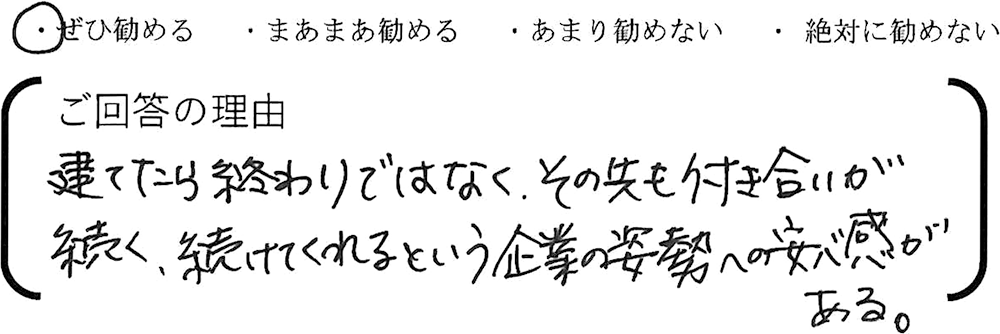 ・ぜひ勧める ・まあまあ勧める ・あまり勧めない ・絶対に勧めない
ご回答の理由
建てたら終わりではなく、その先も付き合いが
続く、続けてくれるという企業の姿勢への安心感が
ある。